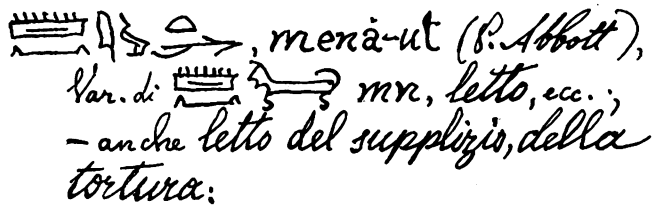 , menà-ut (P. Abbott),
Var. di mn, letto, ecc.;
– anche letto del supplizio, della
tortura: